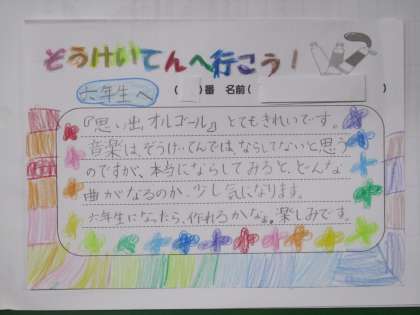 ぞうけいてんへ行こう!
六年生へ ( )番 名前( )
『思い出オルゴール』とてもきれいです。
音楽は、ぞうけいてんでは、ならしてないと思う
のですが、本当にならしてみると、どんな
曲がなるのか、少し気になります。
六年生になったら、作れるかなぁ。楽しみです。